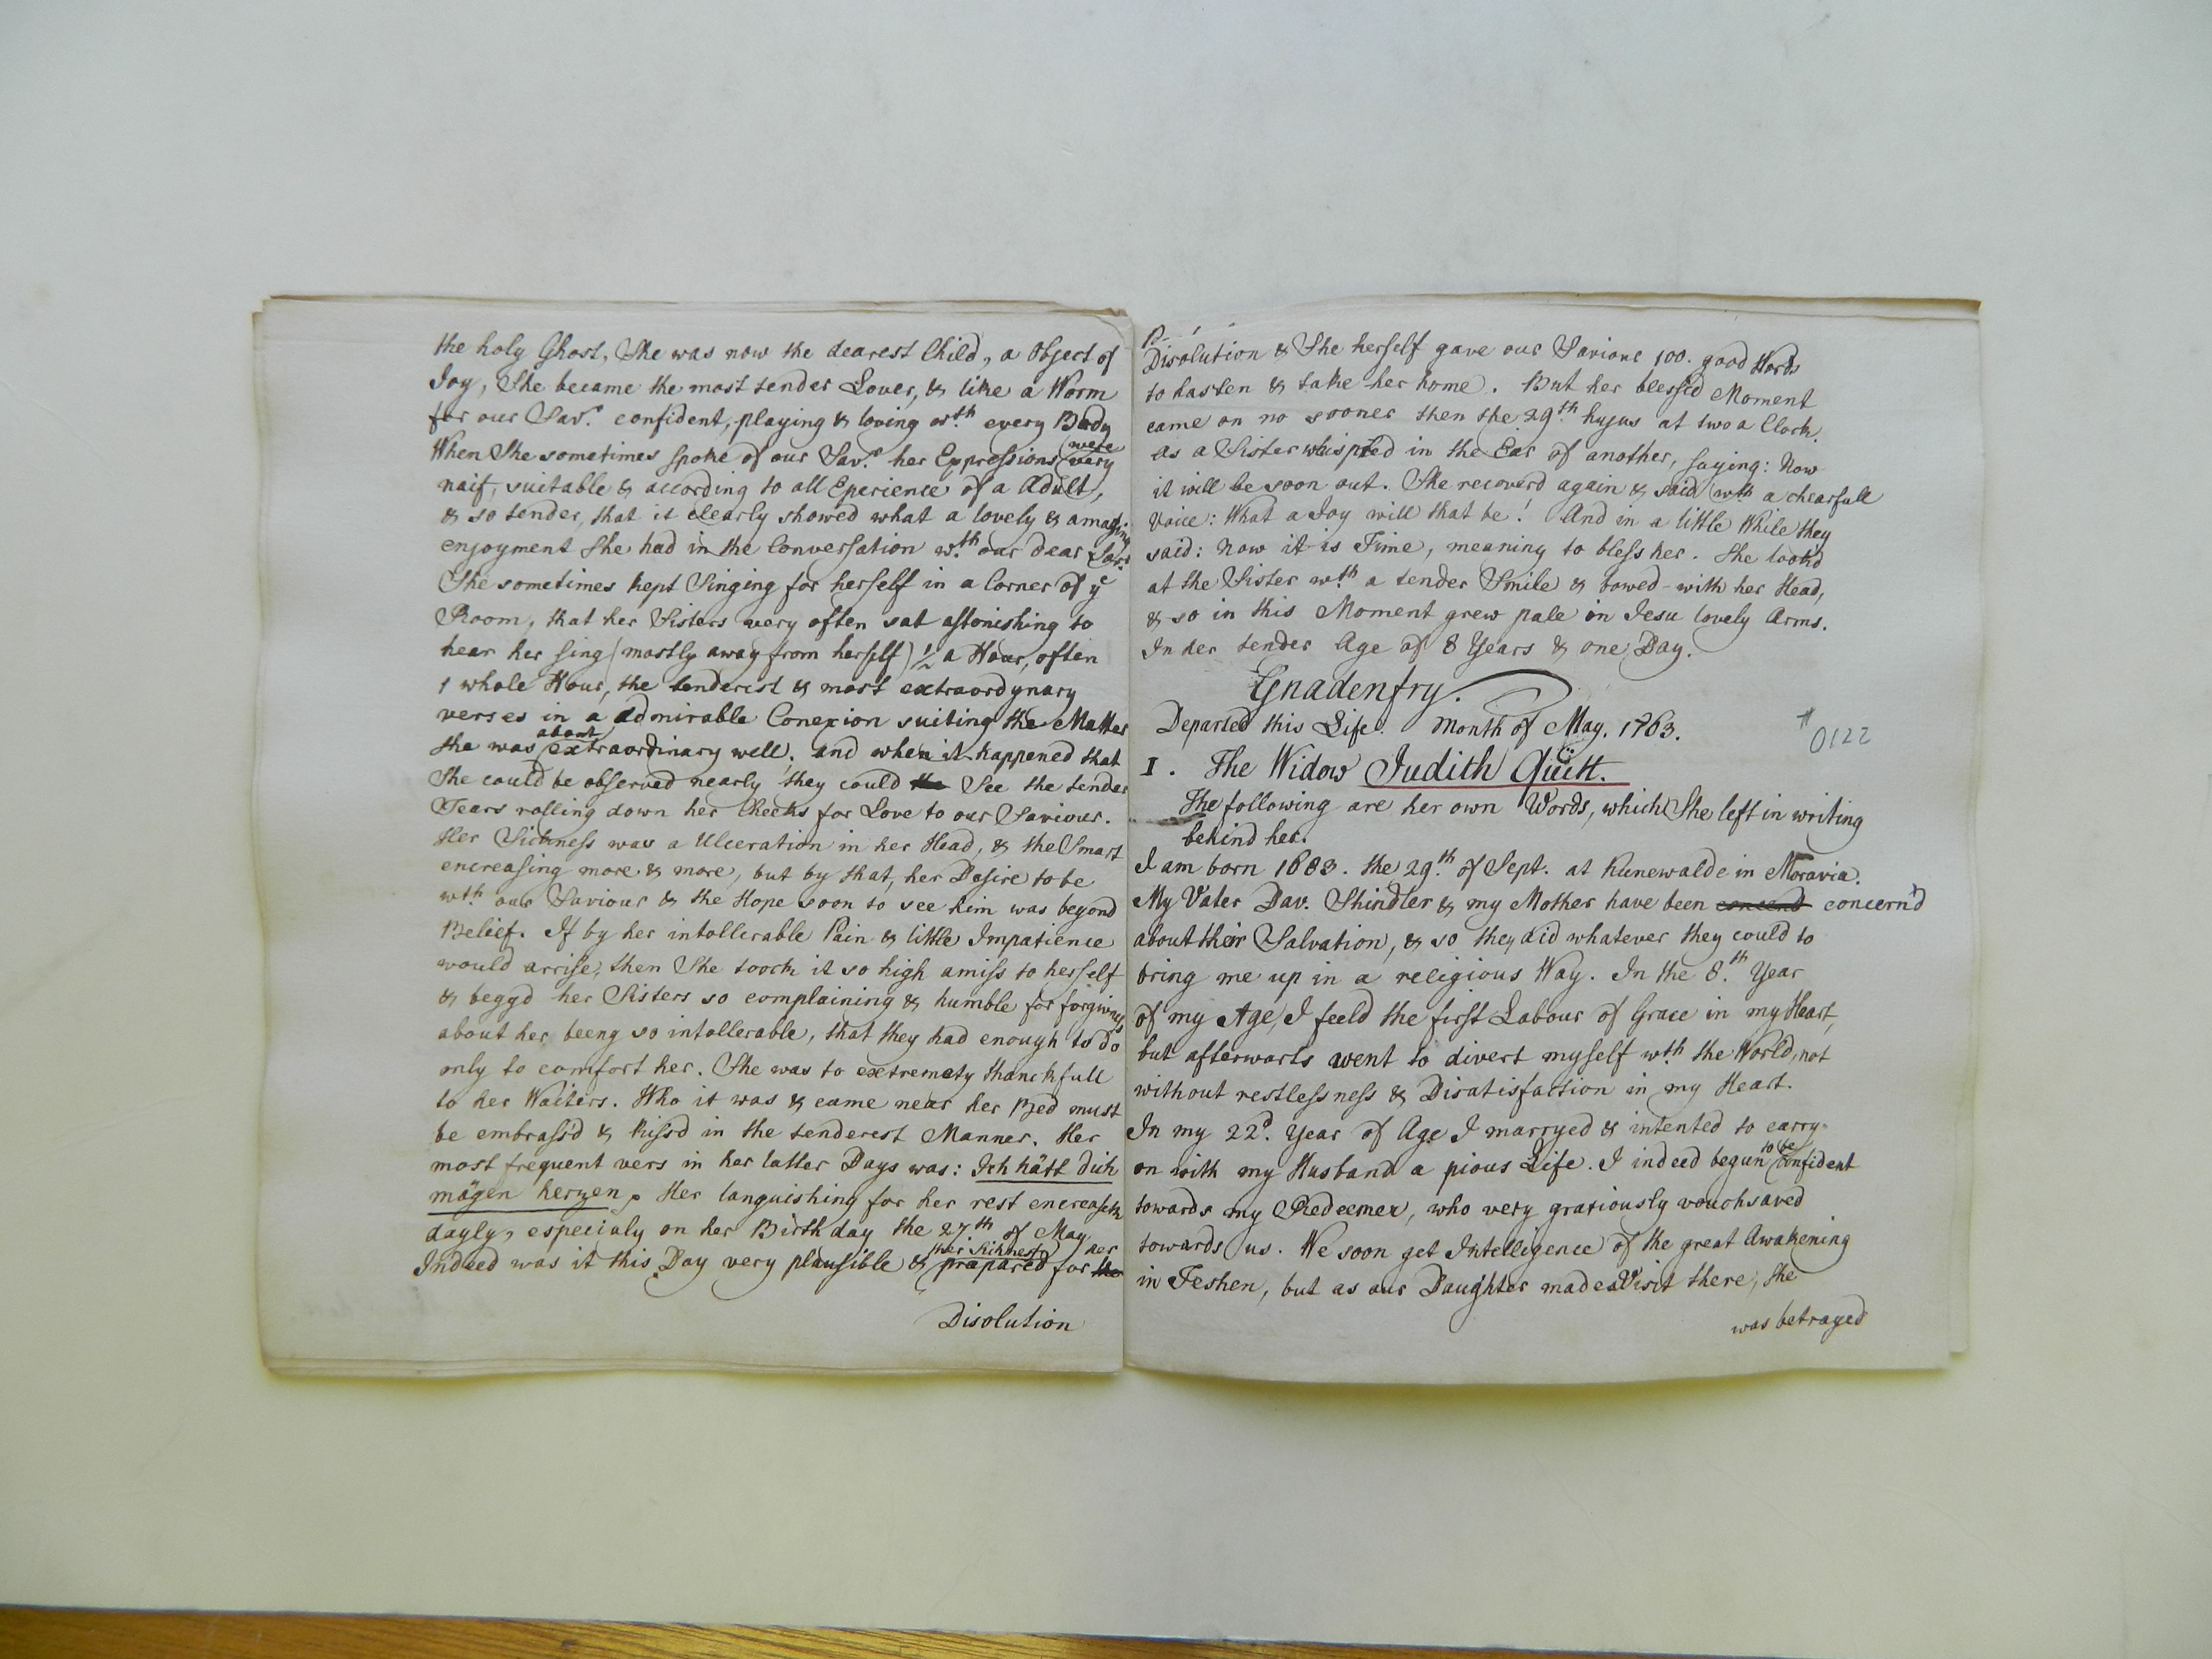 the holy Ghost, She was now the dearest Child, a Object of
Joy, She became the most tender Lover, & like a Worm
for our Sav.r confident, playing & loving wth every Body
When She sometimes spoke of our Sav.r her Expressions were very
naif, suitable & according to all Eperience of a Adult,
& so tender, that it clearly showed what a lovely & amazing
enjoyment She had in the Conversation wth our dear Savr
She sometimes kept Singing for herself in a Corner of ye
Room, that her Sisters very often sat astonishing to
hear her sing (mostly away from herself) 1/2 a Hour, often
1 whole Hour, the tenderest & most extraordynary
verses in a admirable Conexion suiting the Matter
she was about extraordinary well. and when it happened that
She could be observed nearly they could the See the tender
Tears rolling down her Cheeks for Love to our Saviour.
Her Sickness was a Ulceration in her Head, & the Smart
encreasing more & more, but by that, her Desire to be
wth our Saviour & the Hope soon to see him was beyond
Belief. If by her intollerable Pain & little Impatience
would arrise, then She toock it so high amiss to herself
& beggd her Sisters so complaining & humble for forgivness
about her beeng so intollerable, that they had enough to do
only to comfort her. She was to extremety thanckfull
to her Waiters. Who it was & came near her Bed must
be embrass'd & kiss'd in the tenderest Manner. Her
most frequent vers in her latter Days was: Ich hätt dich
mögen herzen. Her languishing for her rest encreaseth
dayly, especialy on her Birth day the 27th of May
Indeed was it this Day very plausible & her Sickness prepared for the her
Disolution
Disolution & She herself gave our Saviour 100. good Words
to hasten & take her home. But her blessed Moment
came on no sooner then the 29th hujus at two a Clock.
as a Sister whispred in the Ear of another, saying: Now
it will be soon out. She recoverd again & said wth a chearfull
Voice: What a Joy will that be! And in a little While they
said: now it is Time, meaning to bless her. She lookd
at the Sister wth a tender Smile & bowed with her Head,
& so in this Moment grew pale in Jesu lovely Arms.
In der tender Age of 8 Years & one Day.
Gnadenfry.
Departed this Life. Month of May. 1763.
# 0122
I. The Widow Judith Quitt.
The following are her own Words, which She left in writing
behind her.
I am born 1683. the 29th of Sept. at Kunewalde in Moravia.
My Vater Dav. Shindler & my Mother have been concend concern'd
about their Salvation, & so they did whatever they could to
bring me up in a religious Way. In the 8.th Year
of my Age, I feeld the first Labour of Grace in my Heart,
but afterwarts went to divert myself wth the World, not
without restlessness & Disatisfaction in my Heart.
In my 22d. Year of Age I marryed & intented to carry
on with my Husband a pious Life. I indeed begun to be confident
towards my Redeemer, who very gratiously vouchsaved
towards us. We soon get Intelligence of the great Awakening
in Teshen, but as our Daughter made a Visit there, She
was betrayed